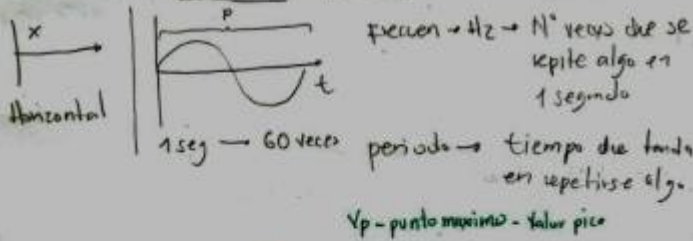 x
Horizontal
P
t
1 seg → 60 veces
frecuen → Hz → N° veces que se
repite algo en
1 segundo
periodo → tiempo que tarda
en repetirse algo.
Vp - punto maximo - Valor pico